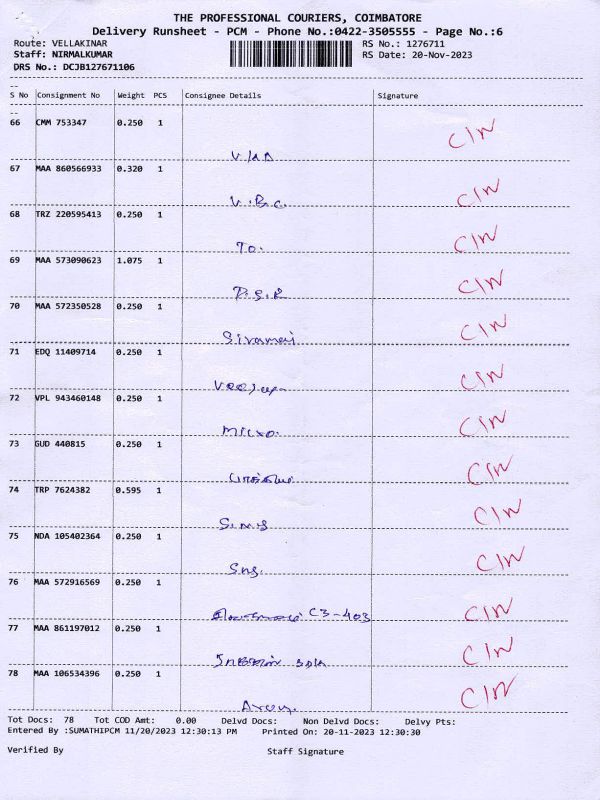 THE PROFESSIONAL COURIERS, COIMBATORE
Delivery Runsheet - PCM - Phone No.:0422-3505555 - Page No.:6
Route: VELLAKINAR RS No.: 1276711
Staff: NIRMALKUMAR RS Date: 20-Nov-2023
DRS No.: DCJB127671106
--
S No Consignment No Weight PCS Consignee Details Signature
--
66 CMM 753347 0.250 1 C/N
67 MAA 860566933 0.320 1
V.B.C. C/N
68 TRZ 220595413 0.250 1
To. C/N
69 MAA 573090623 1.075 1
P.S.R C/N
70 MAA 572350528 0.250 1
C/N
71 EDQ 11409714 0.250 1
C/N
72 VPL 943460148 0.250 1
Micro. C/N
73 GUD 440815 0.250 1
C/N
74 TRP 7624382 0.595 1
C/N
75 NDA 105402364 0.250 1
Sns. C/N
76 MAA 572916569 0.250 1
C3-403 C/N
77 MAA 861197012 0.250 1
C/N
78 MAA 106534396 0.250 1
C/N
Tot Docs: 78 Tot COD Amt: 0.00 Delvd Docs: Non Delvd Docs: Delvy Pts:
Entered By :SUMATHIPCM 11/20/2023 12:30:13 PM Printed On: 20-11-2023 12:30:30
Verified By Staff Signature